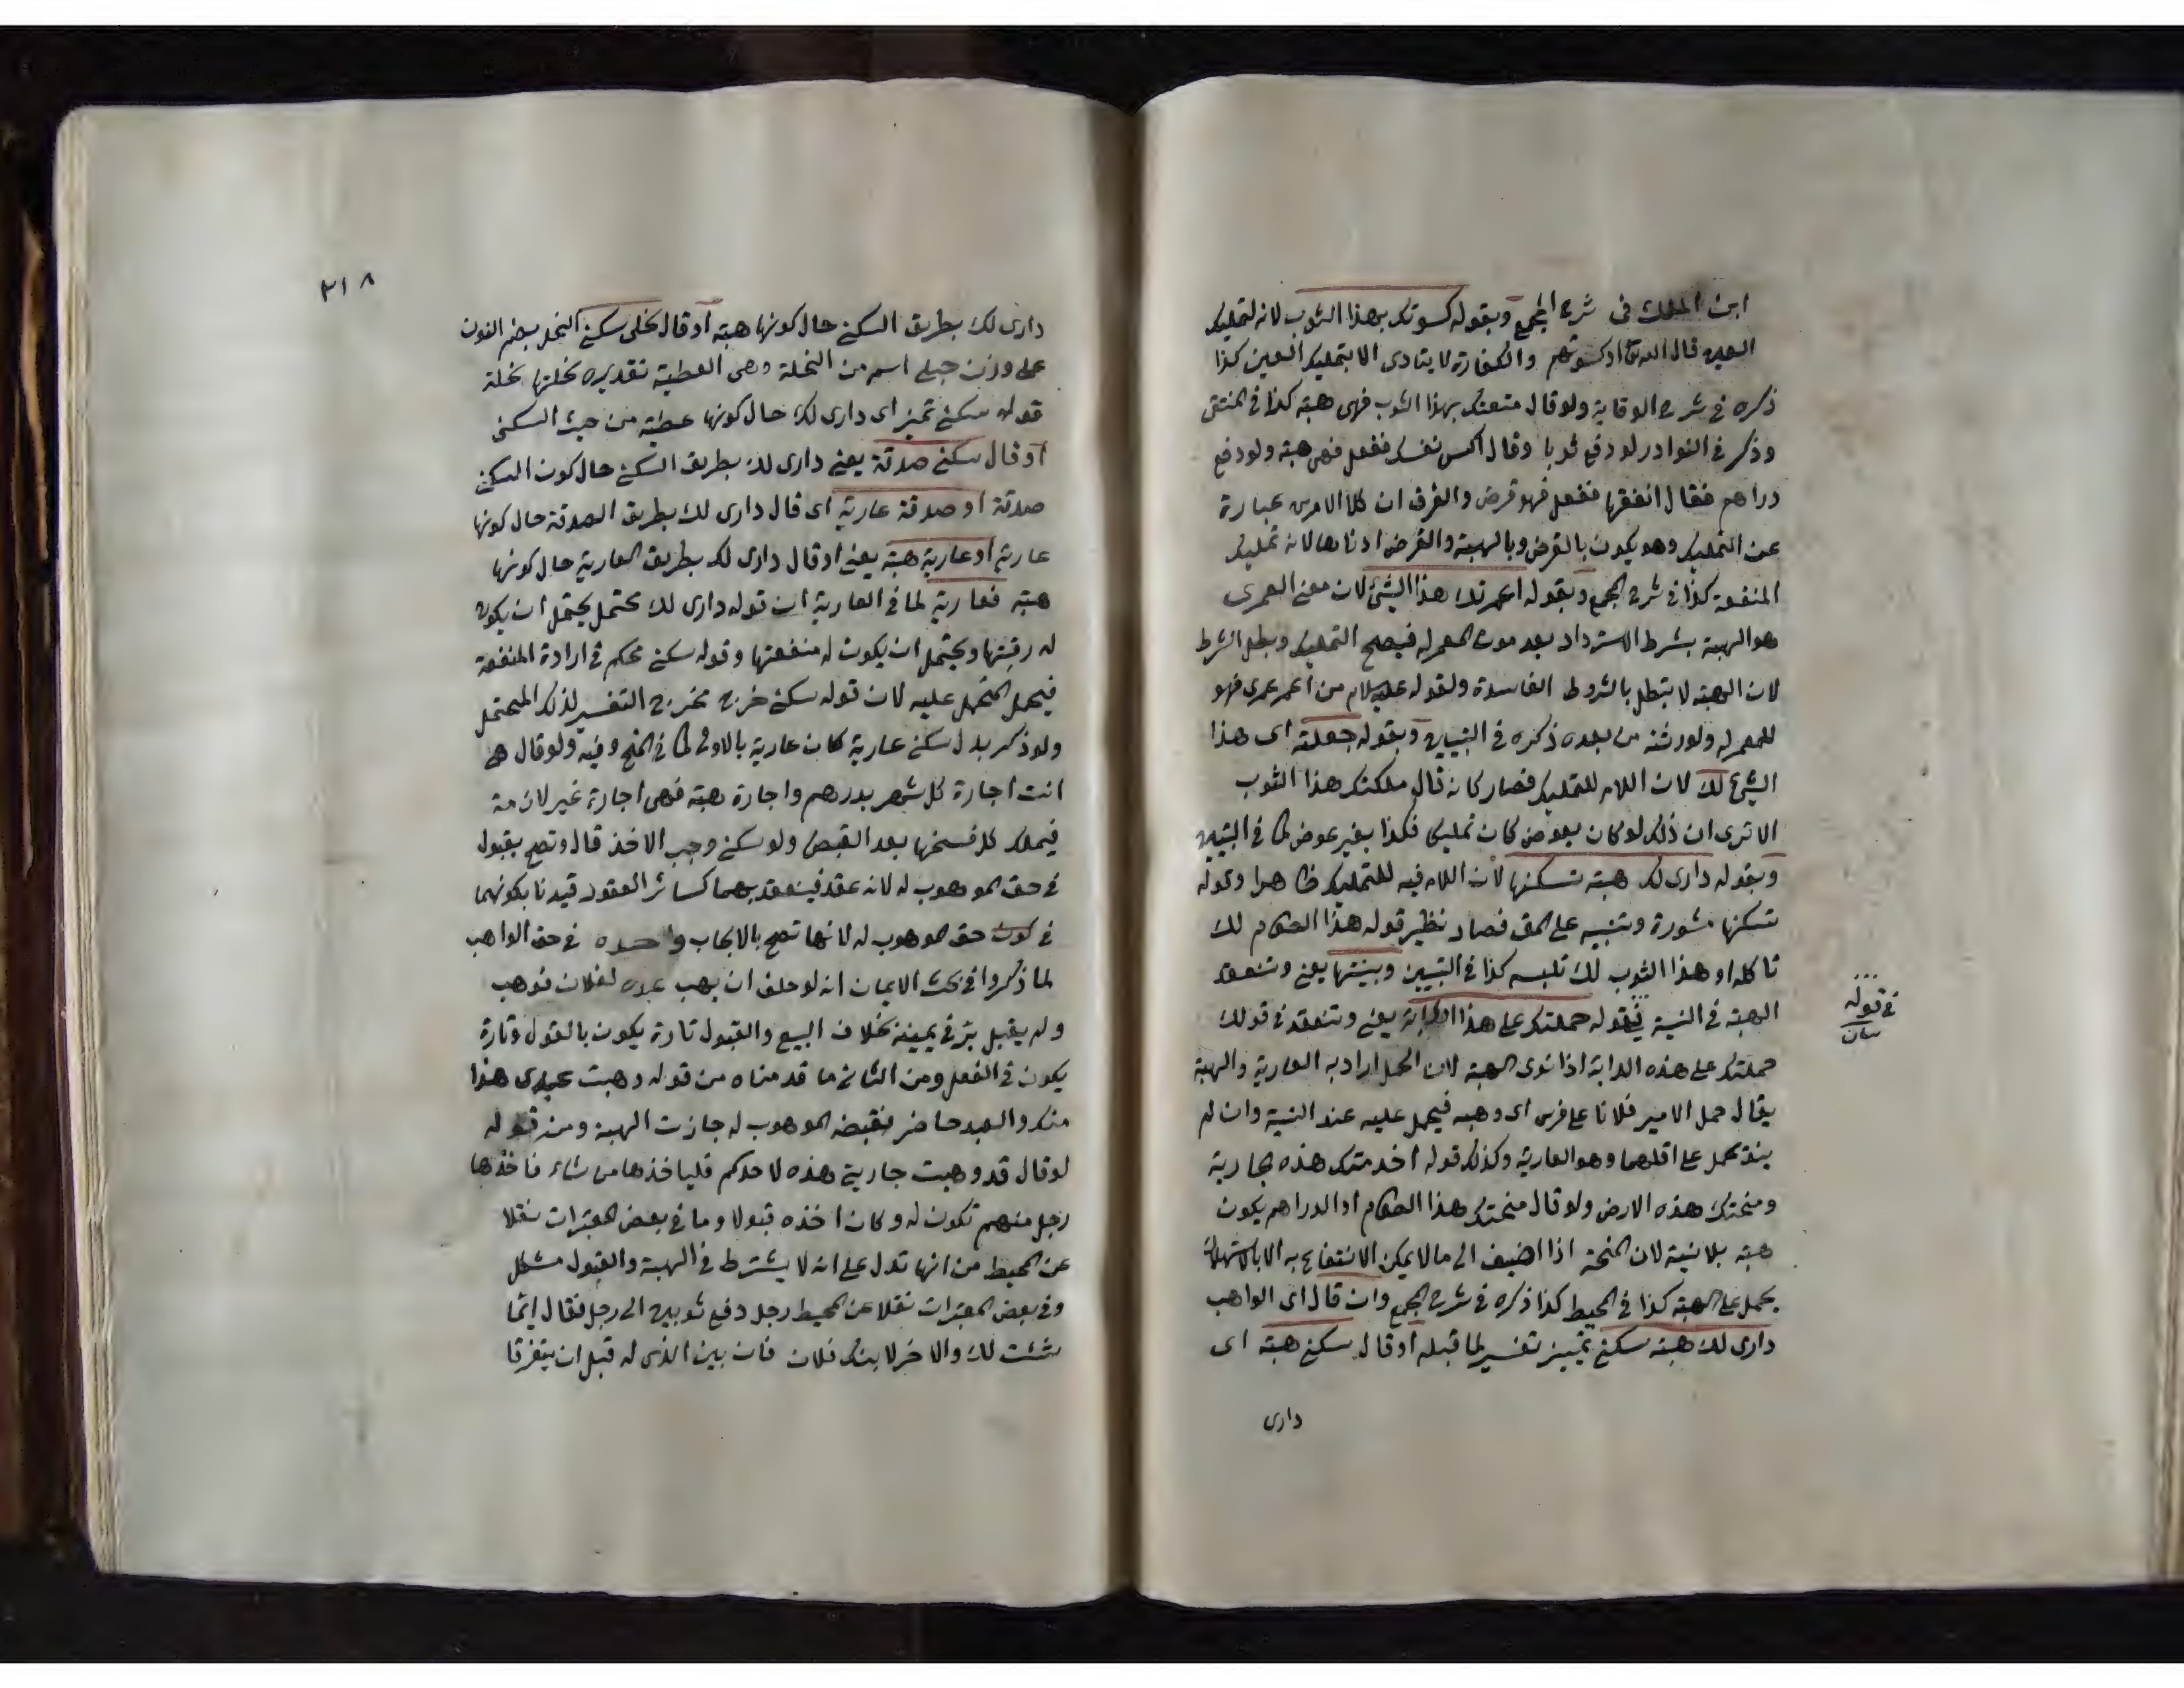 ابن الملك في شرح المجمع وبقوله كسوتك بهذا الثوب لانه لتمليك
العين قال الله تع او كسوتهم والكفارة لا يتادى الا بتمليك العين كذا
ذكره في شرح الوقاية ولو قال متعتك بهذا الثوب فهي هبة كذا في المنتقى
وذكر في النوادر لو دفع ثوبا وقال اكس نفسك ففعل فهي هبة ولو دفع
دراهم فقال انفقها ففعل فهو قرض والفرق ان كلا الامرين عبارة
عن التمليك وهو يكون بالقرض وبالهبة والقرض ادناهما لانه تمليك
المنفعة كذا في شرح المجمع وبقوله اعمرتك هذا الشئ لان معنى العمرى
هو الهبة بشرط الاسترداد بعد موت المعمر له فيصح التمليك وبطل الشرط
لان الهبة لا يبطل بالشروط الفاسدة ولقوله عليه السلام من اعمر عمرى فهو
للمعمر له ولورثته من بعده ذكره في التبيين وبقوله جعلته اى هذا
الشئ لك لان اللام للتمليك فصار كانه قال ملكتك هذا الثوب
الا ترى ان ذلك لو كان بعوض كان تمليكا فكذا بغير عوض كما في التبيين
وبقوله دارى لك هبة تسكنها لان اللام فيه للتمليك ظاهرا وقوله
تسكنها مشورة وتنبيه على المق فصار نظير قوله هذا الطعام لك
تاكله او هذا الثوب لك تلبسه كذا في التبيين وبنيتها يعنى وتنعقد
الهبة في النية فى قوله حملتك على هذا الدابة يعنى وتنعقد في قولك
حملتك على هذه الدابة اذا نوى الهبة لان الحمل اراد به العارية والهبة
يقال حمل الامير فلانا على فرس اى وهبه فيحمل عليه عند النية وان لم
ينو يحمل على اقلهما وهو العارية وكذلك قوله اخدمتك هذه الجارية
ومنحتك هذه الارض ولو قال منحتك هذا الطعام او الدراهم يكون
هبة بلا نية لان المنحة اذا اضيف الى ما لا يمكن الانتفاع به الا بالاستهلاك
يحمل على الهبة كذا في المحيط كذا ذكره في شرح المجمع وان قال اى الواهب
دارى لك هبة سكنى تمييز تفسير لما قبله او قال سكنى هبة اى
دارى
في قوله
٣١٨
دارى لك بطريق السكنى حال كونها هبة او قال نحلى سكنى النحلى بضم النون
على وزن حبلى اسم من النحلة وهى العطية تقديره نحلتها نحلة
قوله سكنى تميز اى دارى لك حال كونها عطية من حيث السكنى
او قال سكنى صدقة يعنى دارى لك بطريق السكنى حال كون السكنى
صدقة او صدقة عارية اى قال دارى لك بطريق الصدقة حال كونها
عارية او عارية هبة يعنى او قال دارى لك بطريق العارية حال كونها
هبة فعارية لما في العارية ان قوله دارى لك محتمل يحتمل ان يكون
له رقبتها ويحتمل ان يكون له منفعتها وقوله سكنى محكم في ارادة المنفعة
فيحمل المحتمل عليه لان قوله سكنى خرج مخرج التفسير لذلك المحتمل
ولو ذكر بدل سكنى عارية كان عارية بالاولى كما في المنح وفيه ولو قال هى
انت اجارة كل شهر بدرهم واجارة هبة فهى اجارة غير لازمة
فيملك كل فسخها بعد القبض ولو سكنى وجب الاخذ قال وتصح بقبول
في حق الموهوب له لانه عقد فينعقد بهما كسائر العقود قيدنا بكونهما
في حق الموهوب له لانها تصح بالايجاب وحده في حق الواهب
لما ذكروا في بحث الايمان انه لو حلف ان يهب عبده لفلان فوهب
ولم يقبل برّ في يمينه بخلاف البيع والقبول تارة يكون بالقول وتارة
يكون في الفعل ومن الثانى ما قدمناه من قوله وهبت عبدى هذا
منك والعبد حاضر فقبضه الموهوب له جازت الهبة ومن قوله
لو قال قد وهبت جاريتى هذه لاحدكم فليأخذها من شاء فاخذها
رجل منهم تكون له وكان اخذه قبولا وما في بعض المعتبرات نقلا
عن المحيط من انها تدل على انه لا يشترط في الهبة والقبول مشكل
وفي بعض المعتبرات نقلا عن المحيط رجل دفع ثوبين الى رجل فقال ايما
شئت لك والاخر لابنك فلان فان بين الذى له قبل ان يتفرقا